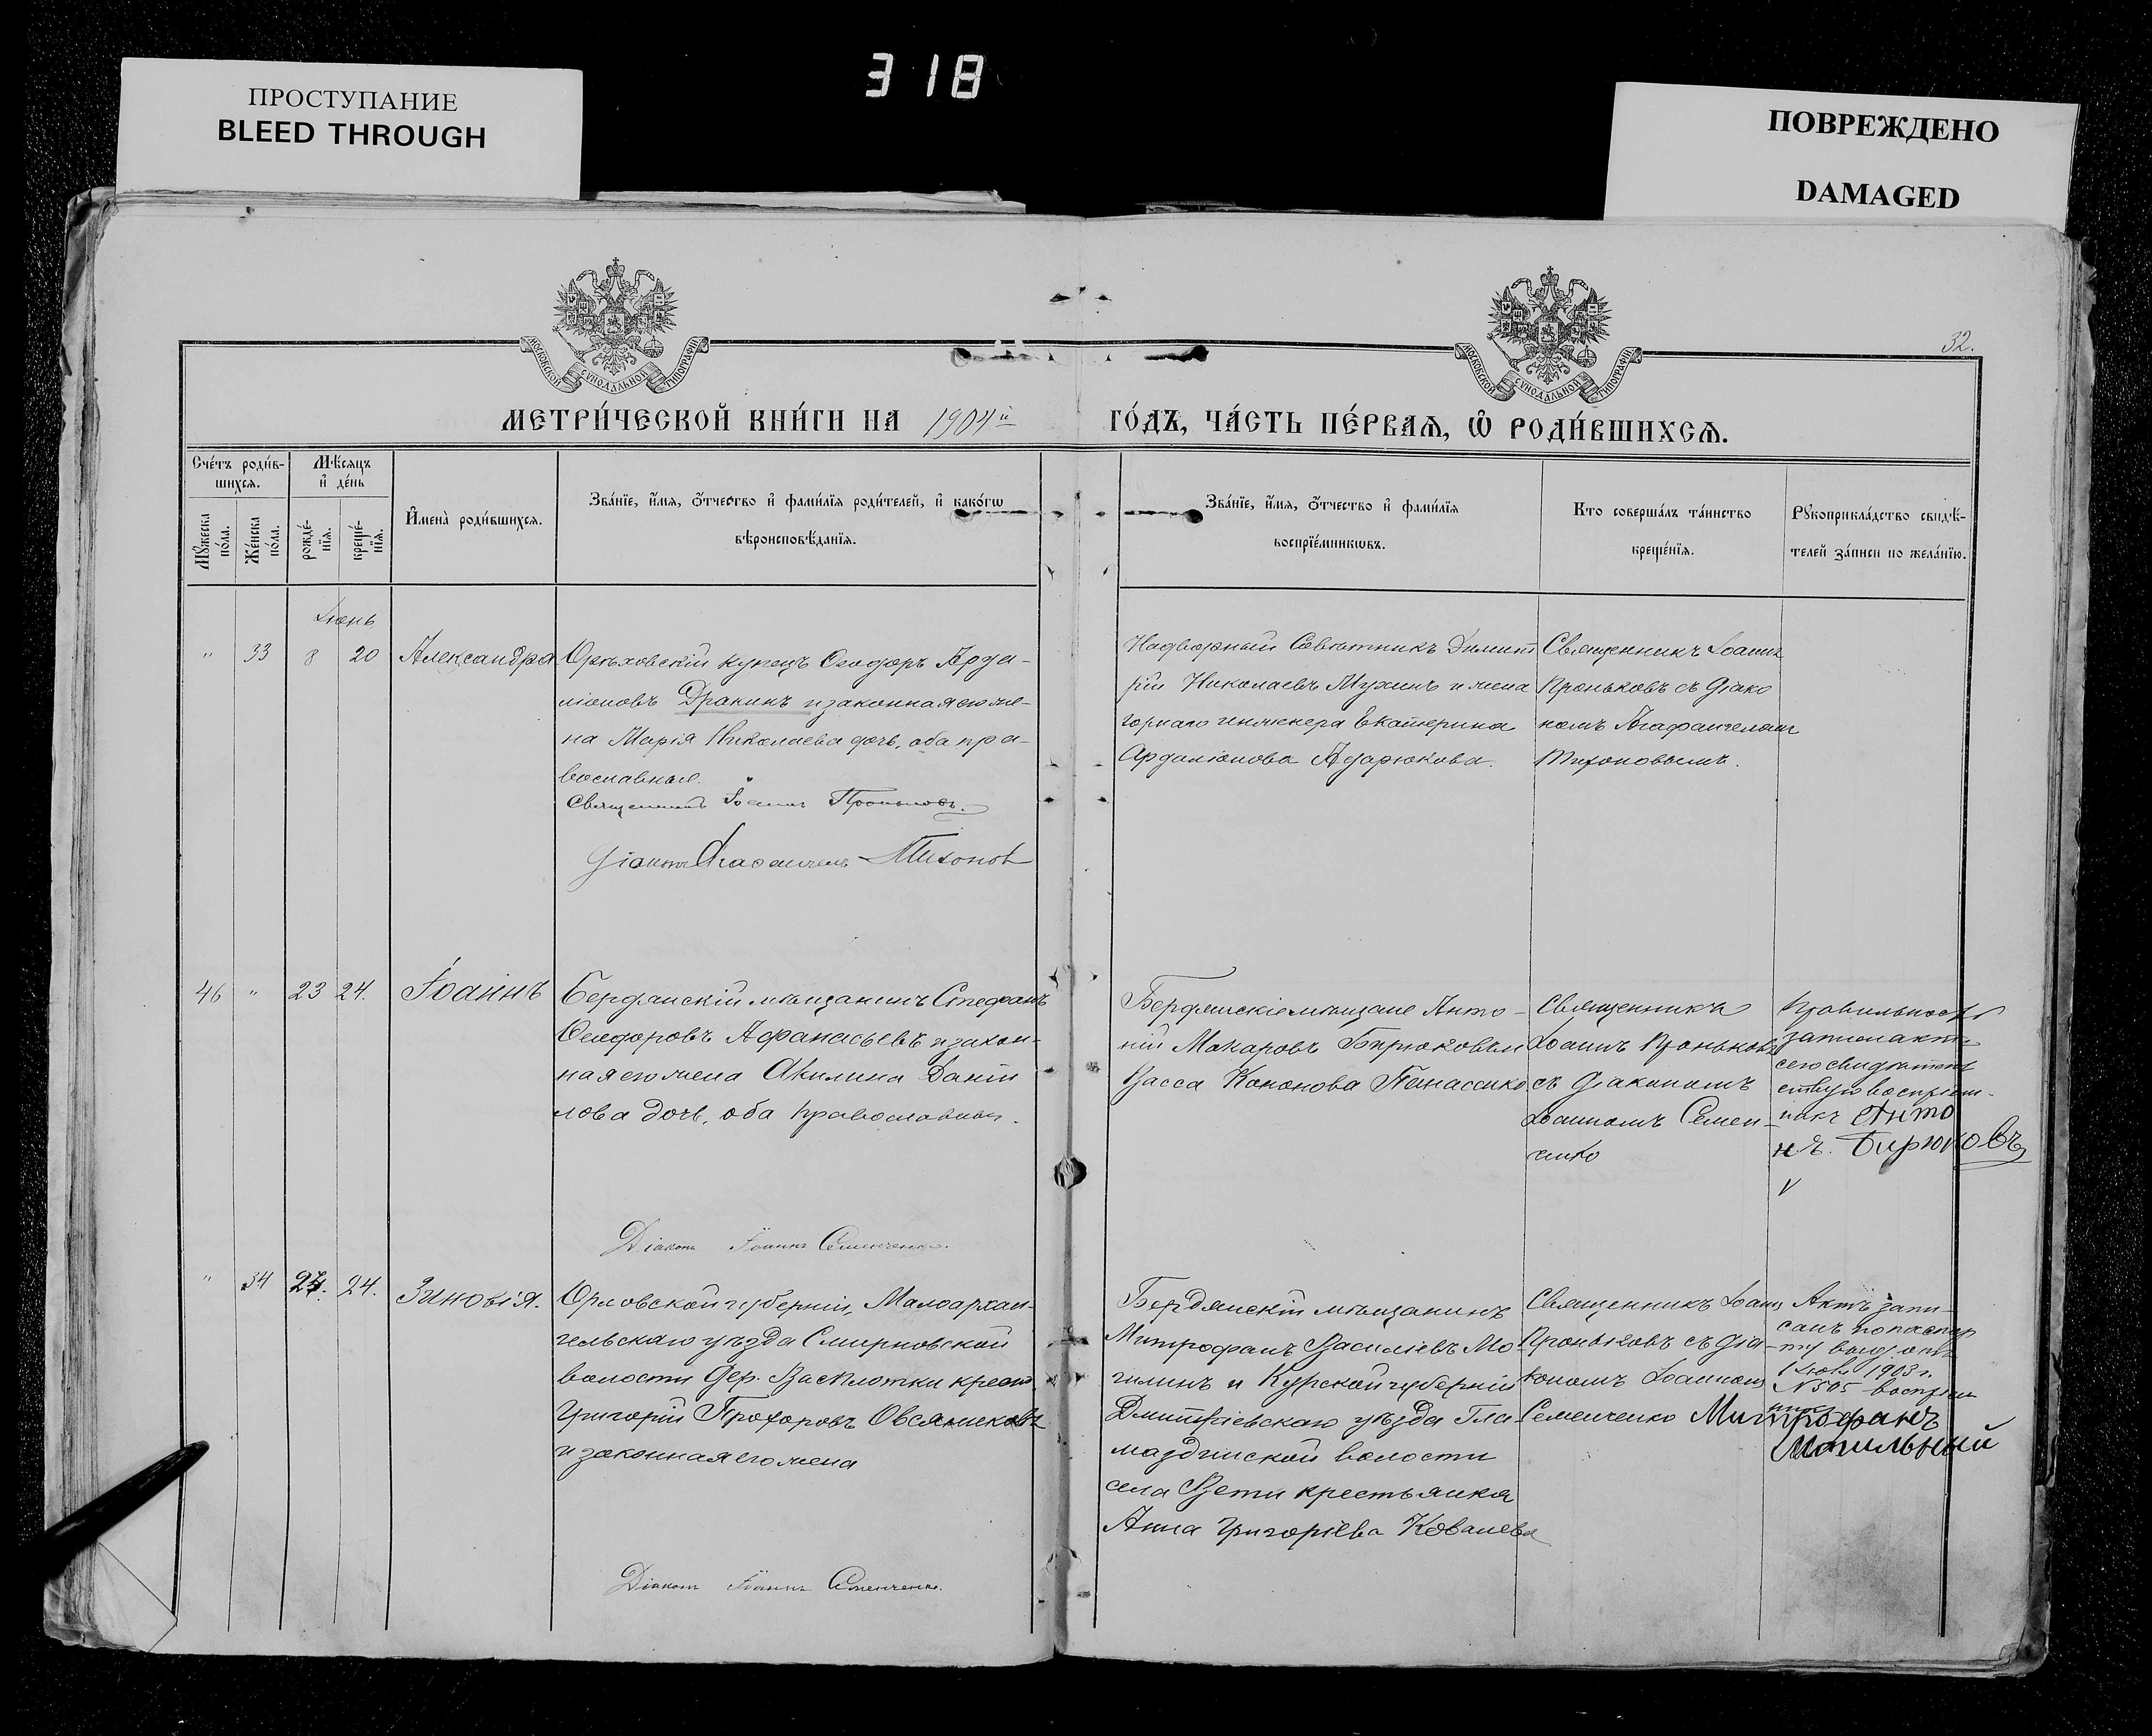 318
ПРОСТУПАНИЕ
BLEED THROUGH
ПОВРЕЖДЕНО
DAMAGED
МОСКОВСКОЙ СѴНОДАЛЬНОЙ ТИПОГРАФІИ
МОСКОВСКОЙ СѴНОДАЛЬНОЙ ТИПОГРАФІИ
32.
МЕТРИ́ЧЕСКОЙ КНИ́ГИ НА 1904й
ГО́ДЪ, ЧА́СТЬ ПЕ́РВАѦ, Ѡ РОДИ́ВШИХСѦ.
Сче́тъ роди́в-
шихсѧ.
Мꙋ́жеска по́ла.
Же́нска по́ла.
Мѣ́сѧцъ
и҆ де́нь
рожде́-
нїѧ.
креще́-
нїѧ.
И҆мена̀ роди́вшихсѧ.
Зва́нїе, и҆́мѧ, ѻ҆́тчество и҆ фами́лїѧ роди́телей, и҆ како́гѡ
вѣроисповѣ́данїѧ.
Зва́нїе, и҆́мѧ, ѻ҆́тчество и҆ фами́лїѧ
воспрїе́мникѡвъ.
Кто соверша́лъ та́инство
креще́нїѧ.
Рꙋкоприкла́дство свидѣ́-
телей за́писи по жела́нїю.
Іюнь
" 33 8 20 Александра
Орѣховскій купецъ Ѳеодоръ Арда-
ліоновъ Дракинъ и законная его же-
на Марія Николаева дочь, оба пра-
вославные.
Священникъ Іоаннъ Проньковъ.
Діаконъ Агафангелъ Тихонов
Надворный Совѣтникъ Димит
рій Николаевъ Мухинъ и жена
горнаго инженера Екатерина
Ардаліонова Адарюкова.
Священникъ Іоаннъ
Проньковъ съ Діако
номъ Агафангеломъ
Тихоновымъ.
46 " 23 24. Іоаннъ
Бердянскій мѣщанинъ Стефанъ
Ѳеодоровъ Афанасьевъ и закон-
ная его жена Акилина Даніи
лова дочь, оба православные.
Діаконъ Іоаннъ Семенченко.
Бердянскіе мѣщане Анто-
ній Макаровъ Бирюковъ и
Васса Кононова Панасенко
Священникъ
Іоаннъ Проньковъ
съ Діакономъ
Іоанномъ Семен-
ченко
Правильность
записи акта
сего свидѣтель
ствую воспріем-
никъ Анто
нъ. Бирюковъ
" 34 24. 24. Зиновія.
Орловской губерніи, Малоархан-
гельскаго уѣзда Смирновской
волости дер. Васплотки крест.
Григорій Прохоровъ Овсяниковъ
и законная его жена
Діаконъ Іоаннъ Семенченко.
Бердянскій мѣщанинъ
Митрофанъ Василіевъ Мо-
гилинъ и Курской губерніи
Дмитріевскаго уѣзда Гла-
маздинской волости
села Вети крестьянка
Анна Григоріева Ковалева
Священникъ Іоаннъ
Проньковъ съ Діа-
кономъ Іоанномъ
Семенченко
Актъ запи-
санъ по паспор
ту выд. отъ
1903 г.
N 505 воспріем
никъ Митрофанъ
Могильный